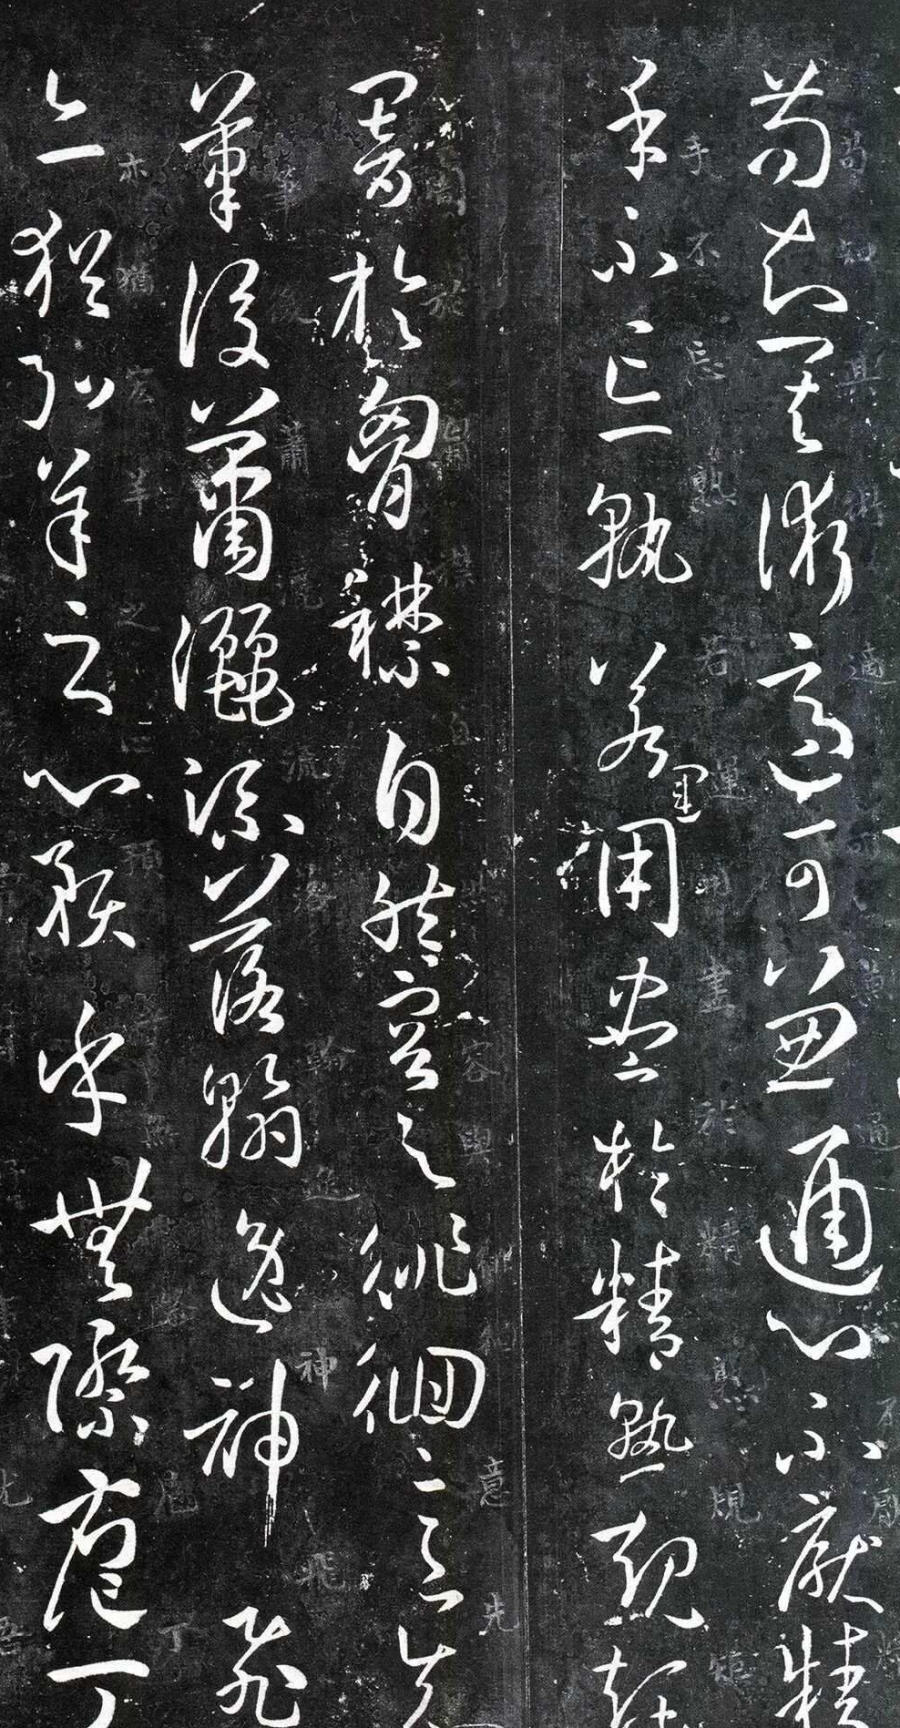 苟知其術適可兼通心不厭精
手不忘熟若運用盡於精熟規矩
闇於胷襟自然容與徘徊意先
筆後蕭灑流落翰逸神飛
亦猶弘羊之心預乎無際庖丁